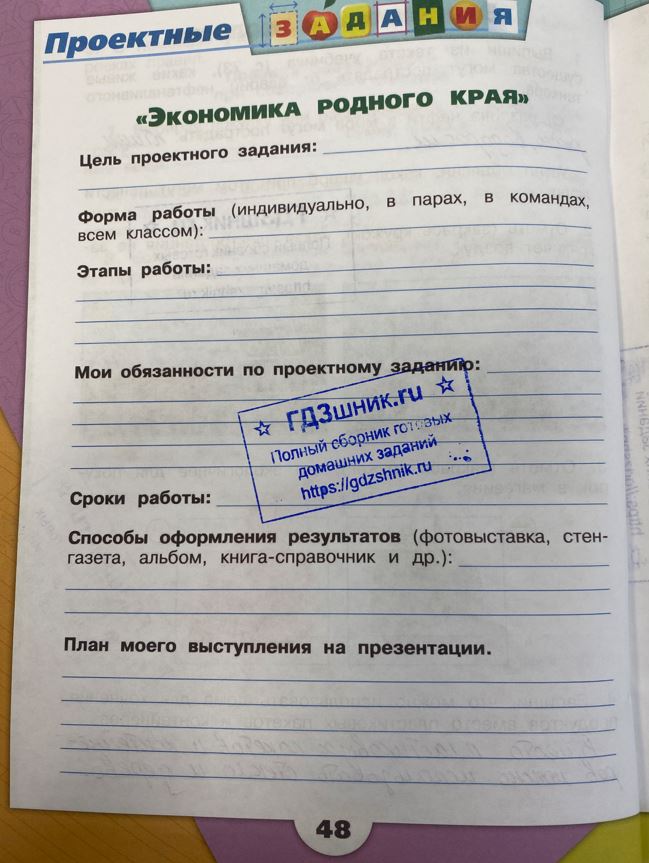 Проектные ЗАДАНИЯ
«ЭКОНОМИКА РОДНОГО КРАЯ»
Цель проектного задания:
Форма работы (индивидуально, в парах, в командах,
всем классом):
Этапы работы:
Мои обязанности по проектному заданию:
ГДЗшник.ru
Полный сборник готовых
домашних заданий
https://gdzshnik.ru
Сроки работы:
Способы оформления результатов (фотовыставка, стен-
газета, альбом, книга-справочник и др.):
План моего выступления на презентации.
48